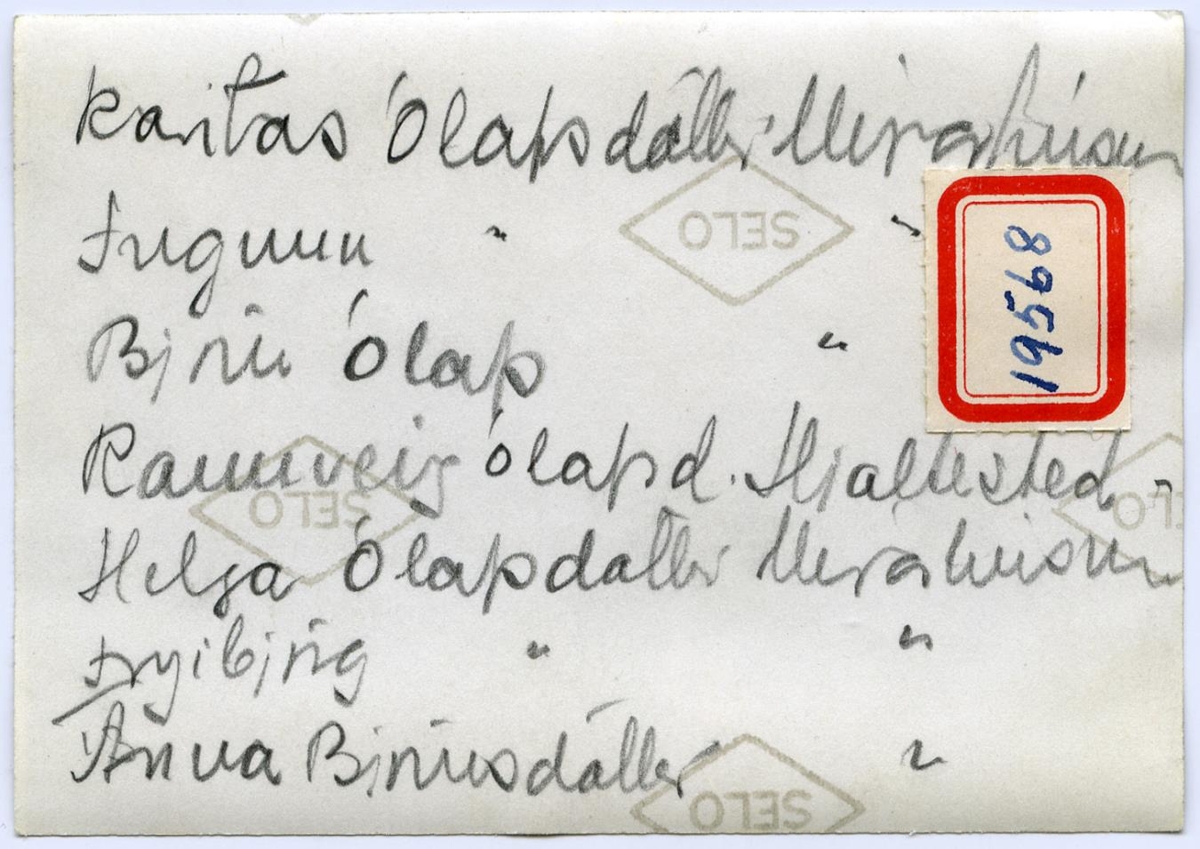 Karitas Ólafsdóttir Mýrarhúsum
Ingunn " "
Björn Ólafs "
Rannveig Ólafsd. Hjaltested
Helga Ólafsdóttir Mýrarhúsum
Ingibjörg " "
Anna Björnsdóttir "
19568
SELO
SELO
SELO
SELO